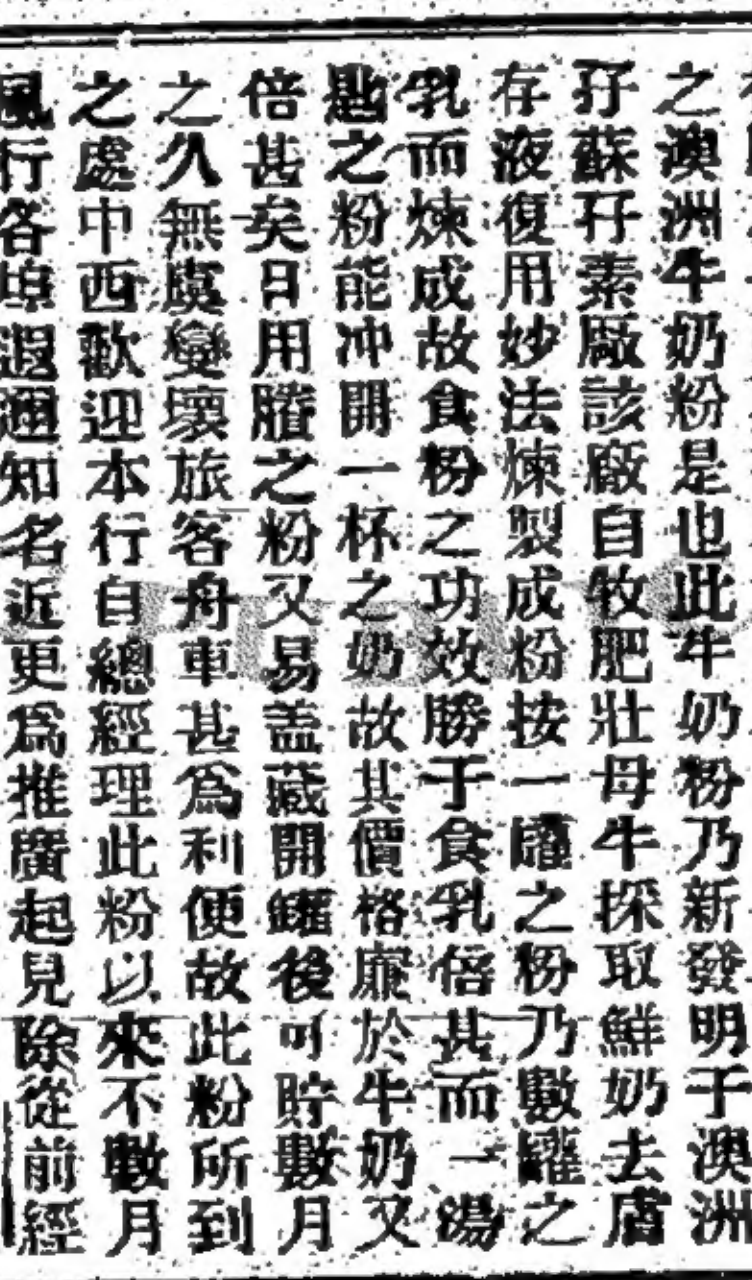 之澳洲牛奶粉是也此牛奶粉乃新發明于澳洲
孖蘇孖素廠該廠自牧肥壯母牛採取鮮奶去膚
存液復用妙法煉製成粉按一罐之粉乃數罐之
乳而煉成故食粉之功效勝于食乳倍甚而一湯
匙之粉能冲開一杯之奶故其價格廉於牛奶又
倍甚矣日用賸之粉又易盖藏開罐後可貯數月
之久無虞變壞旅客舟車甚爲利便故此粉所到
之處中西歡迎本行自總經理此粉以來不數月
風行各埠遐邇知名近更爲推廣起見除從前經